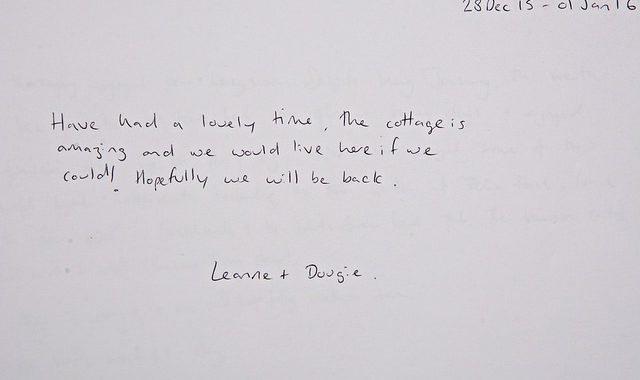 28 Dec 15 - 01 Jan 16
Have had a lovely time, the cottage is
amazing and we would live here if we
could! Hopefully we will be back.
Leanne + Dougie.